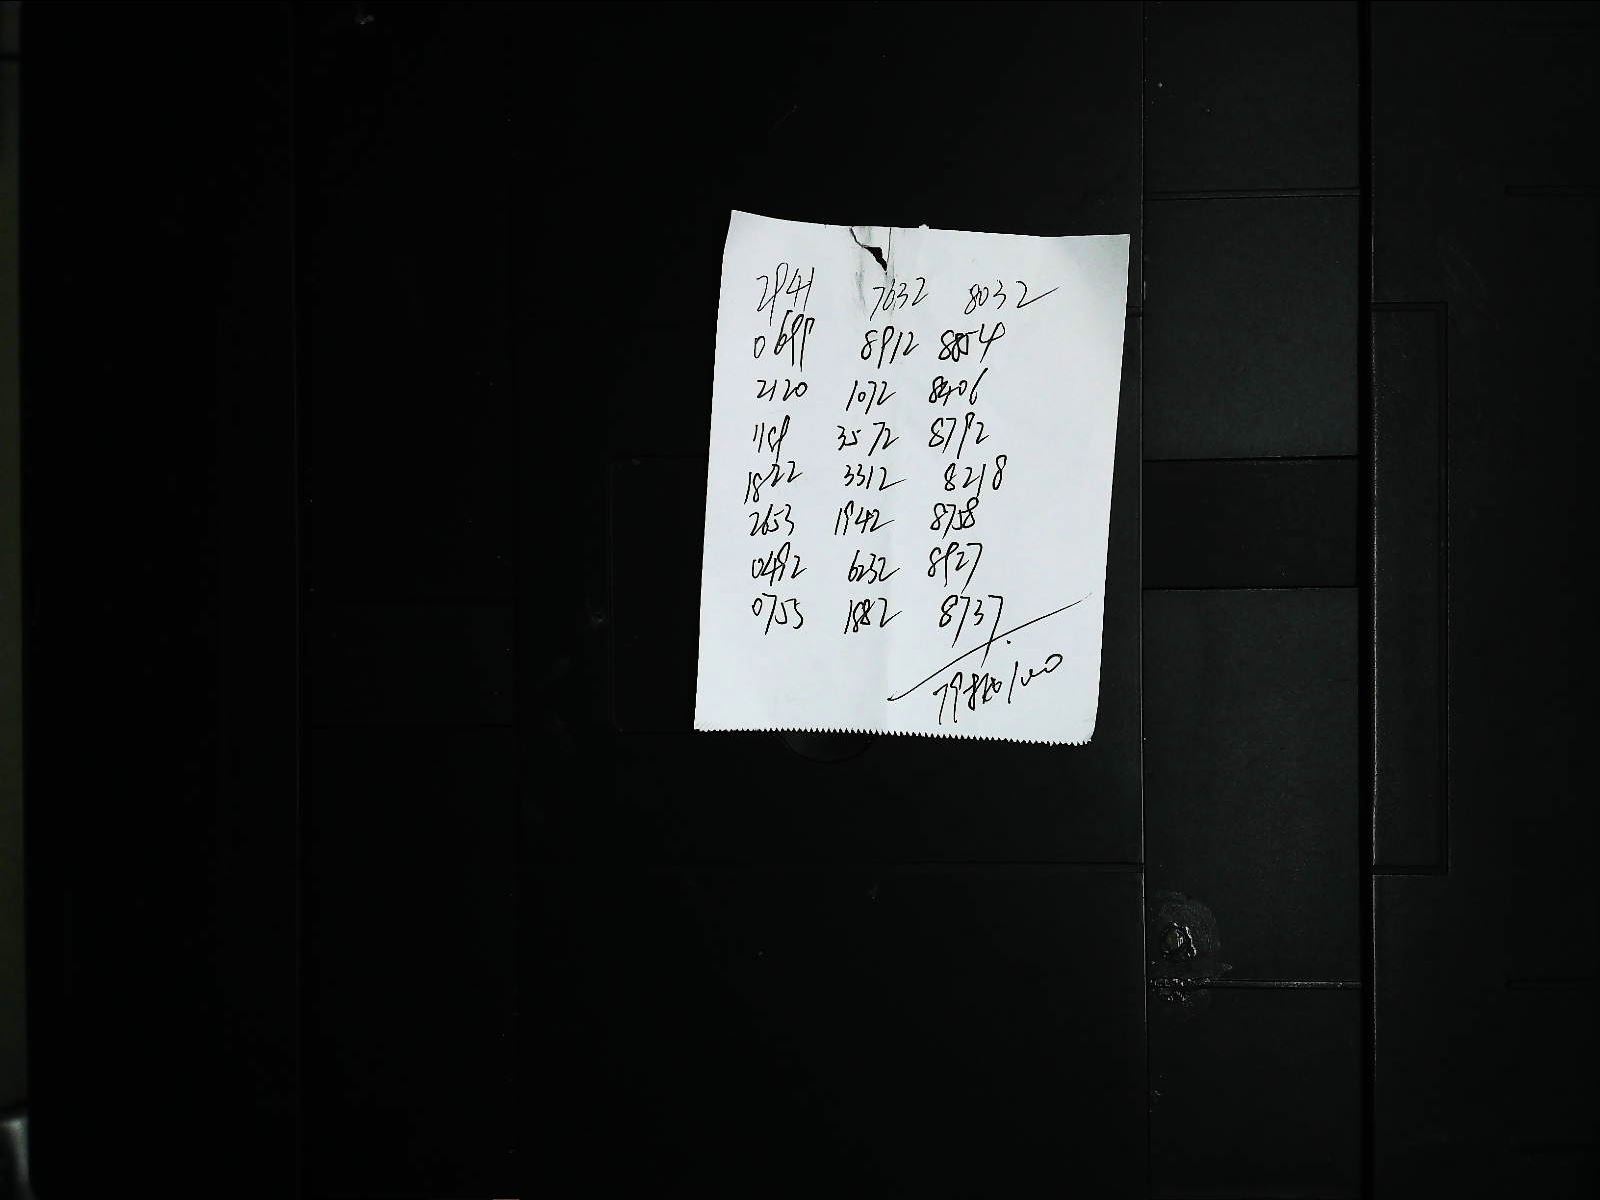 2941 7632 8032
0699 8912 8854
2120 1072 8406
1189 3572 8792
1822 3312 8218
2653 1942 8758
0492 6232 8927
0755 1882 8737